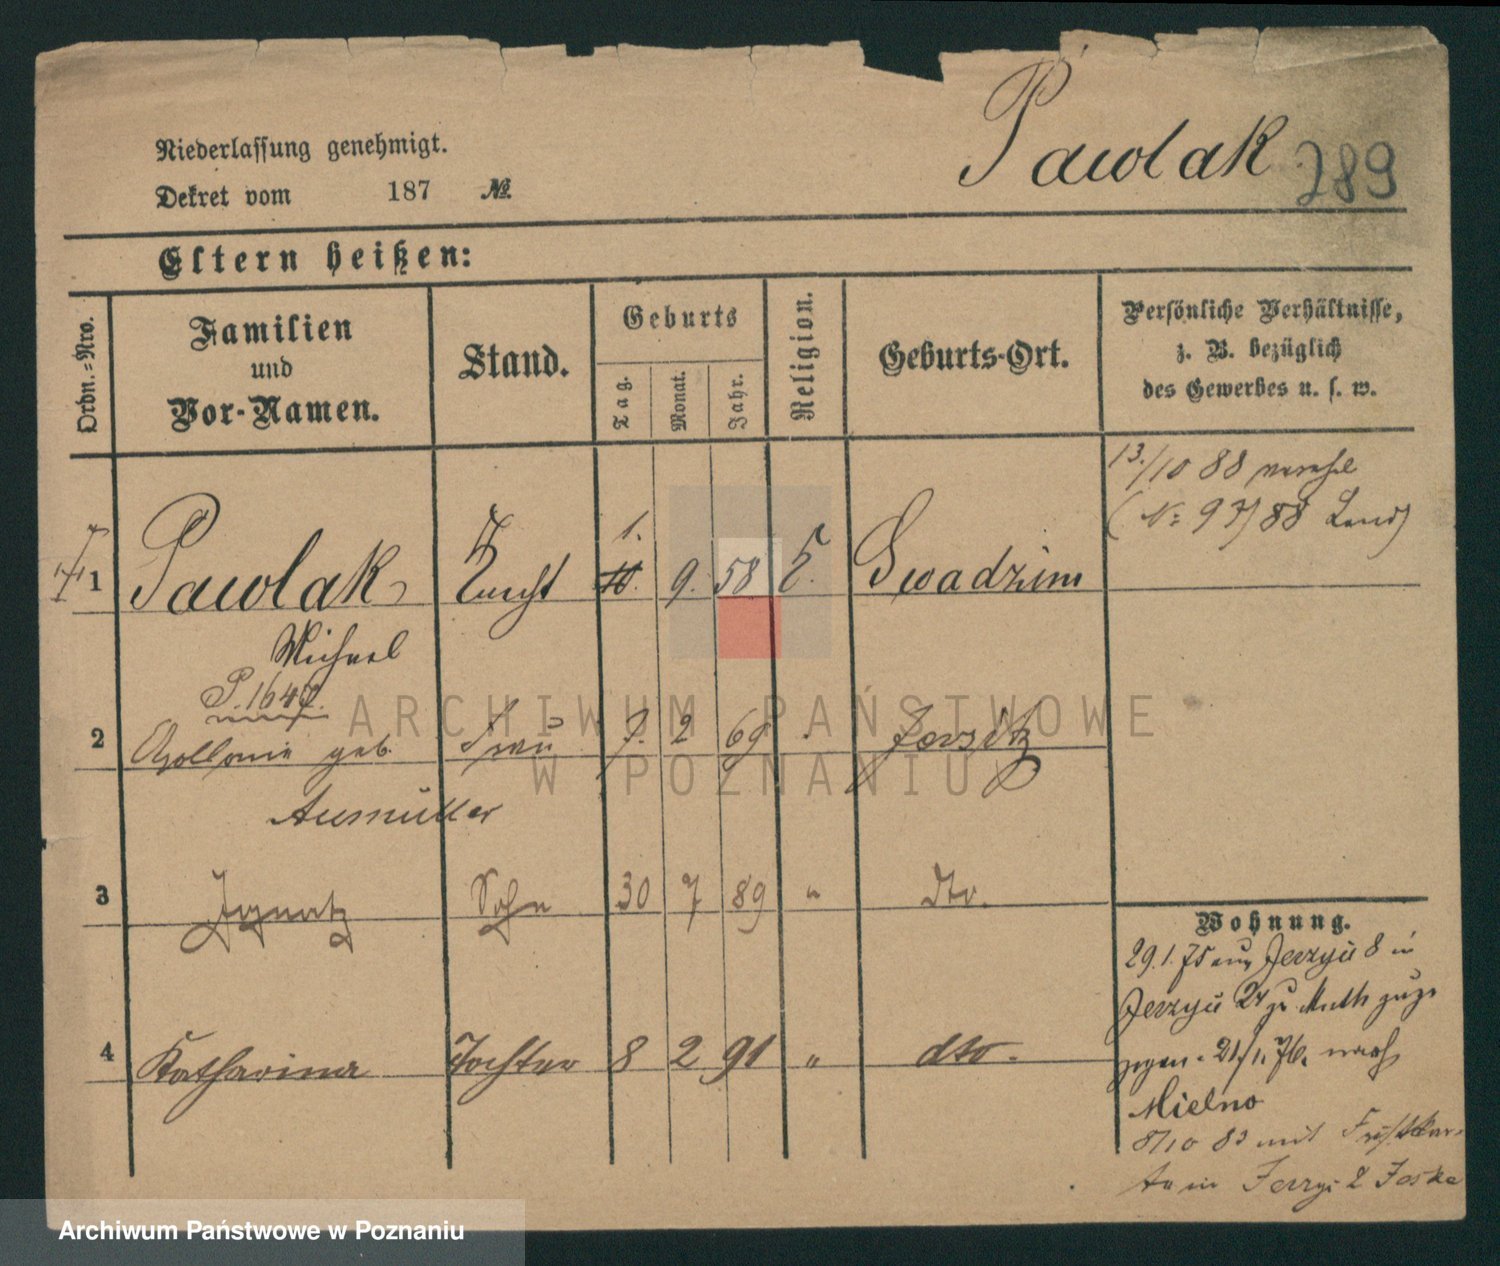 Pawlak 289
Niederlassung genehmigt.
Dekret vom 187 №
Eltern heißen:
Ordn.=Nro.
Familien
und
Vor-Namen.
Stand.
Geburts
Tag. Monat. Jahr.
Religion.
Geburts-Ort.
Persönliche Verhältnisse,
z. B. bezüglich
des Gewerbes u. s. w.
13./10 88 verehel
(№ 93/88 Land)
1.
1 Pawlak Knecht 10. 9. 58 Swadzim
Michael
P. 1647.
2 Apollonia geb. Frau 7. 2 69 Jerzitz
Aumüller
3 Ignatz Sohn 30 7 89 " dto.
4 Katharina Tochter 8 2 91 " dto.
Wohnung.
29.1.75 aus Jerzyce 8 in
Jerzyce 24 zu
21/1. 76. nach
Mielno
8/10 83 mit
in Jerzyce 2
ARCHIWUM PAŃSTWOWE
W POZNANIU
Archiwum Państwowe w Poznaniu